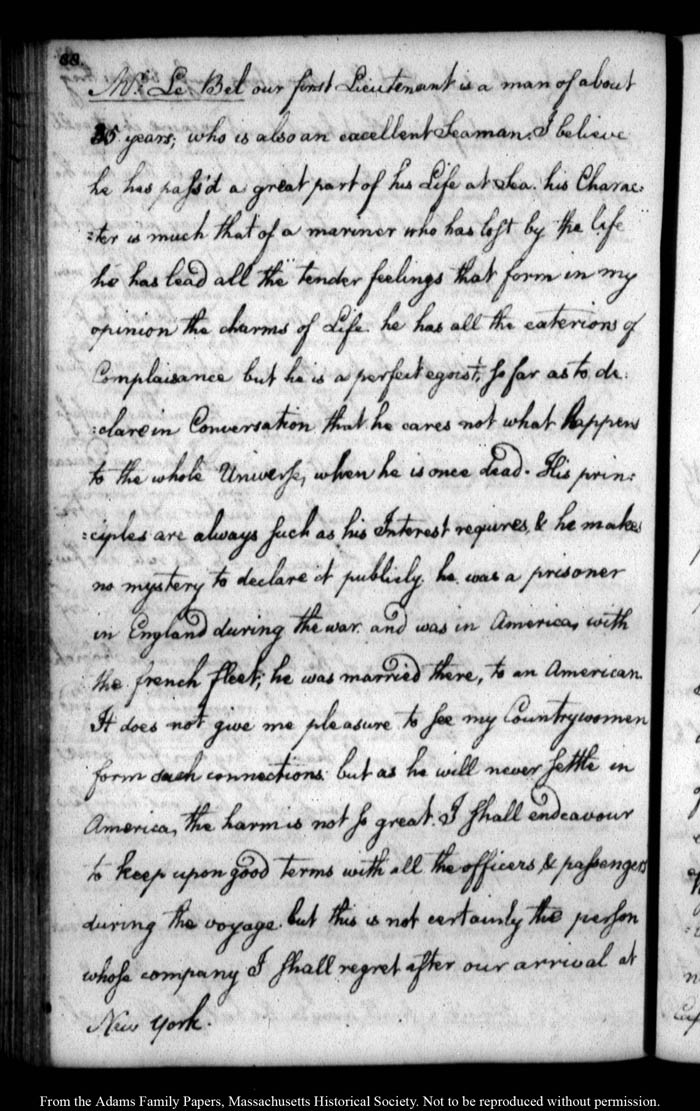 88.
Mr. Le Bel our first Lieutenant is a man of about
35 years; who is also an excellent Seaman: I believe
he has pass'd a great part of his Life at Sea. his Charac=
=ter is much that of a mariner who has lost by the life
he has lead all the tender feelings that form in my
opinion the charms of Life he has all the exterions of
Complaisance but he is a perfect egoist; so far as to de:
:clare in Conversation that he cares not what happens
to the whole Universe, when he is once dead. His prin:
:ciples are always such as his Interest requires, & he makes
no mystery to declare it publicly. he was a prisoner
in England during the war. and was in America, with
the french fleet; he was married there, to an American.
It does not give me pleasure to see my Countrywomen
form such connections: but as he will never settle in
America, the harm is not so great. I shall endeavour
to keep upon good terms with all the officers, & passengers
during the voyage but this is not certainly the person
whose company I shall regret after our arrival at
New York.
From the Adams Family Papers, Massachusetts Historical Society. Not to be reproduced without permission.